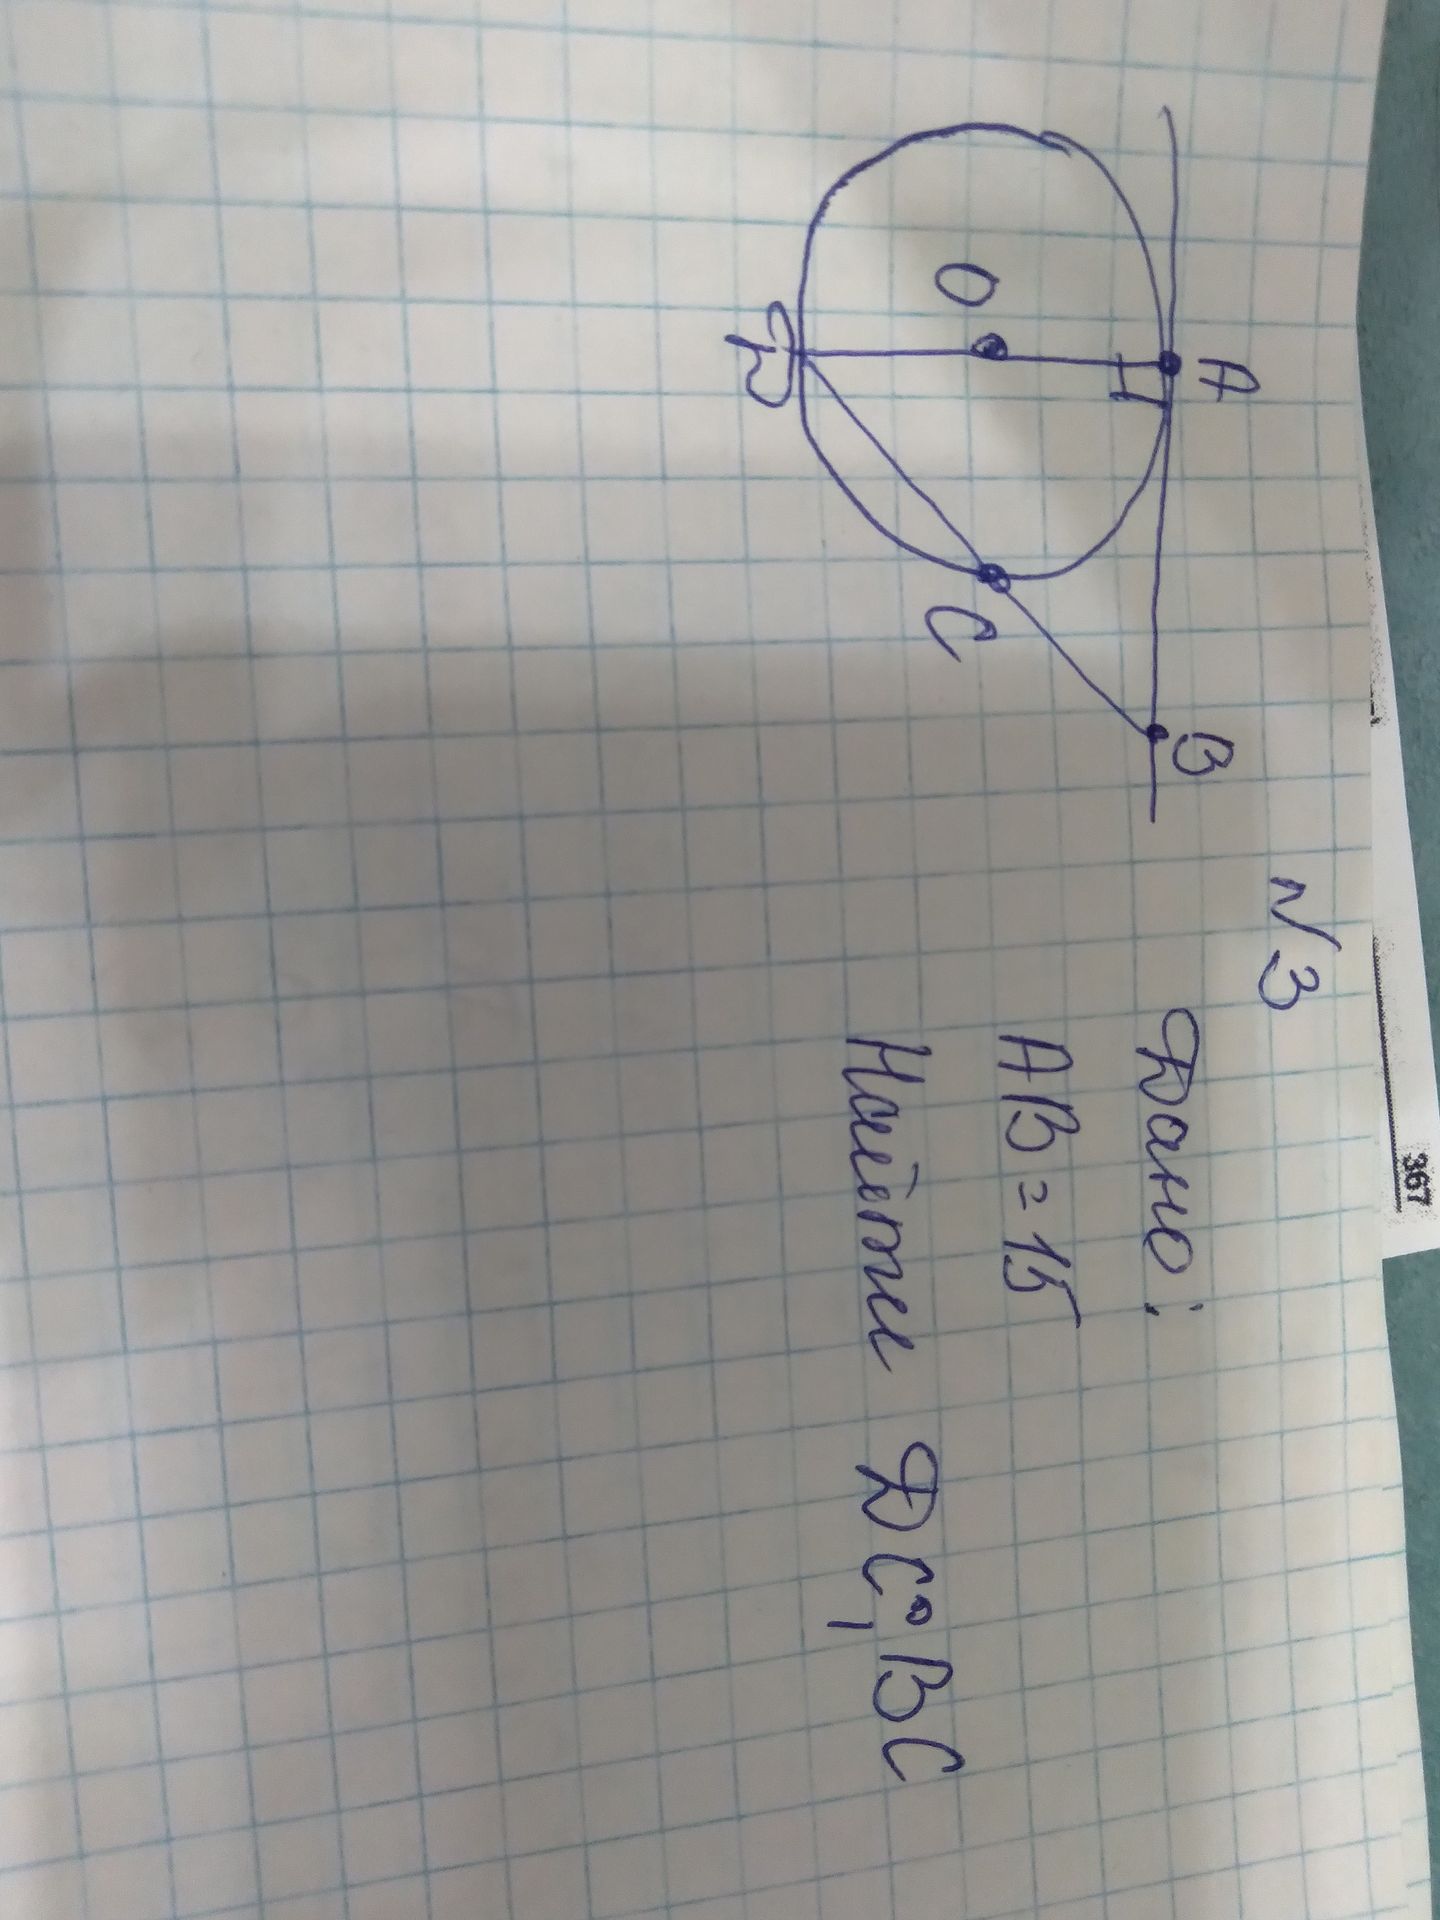 N3
A
B
Дано:
O
AB = 15
C
Найти DC, BC
D
367